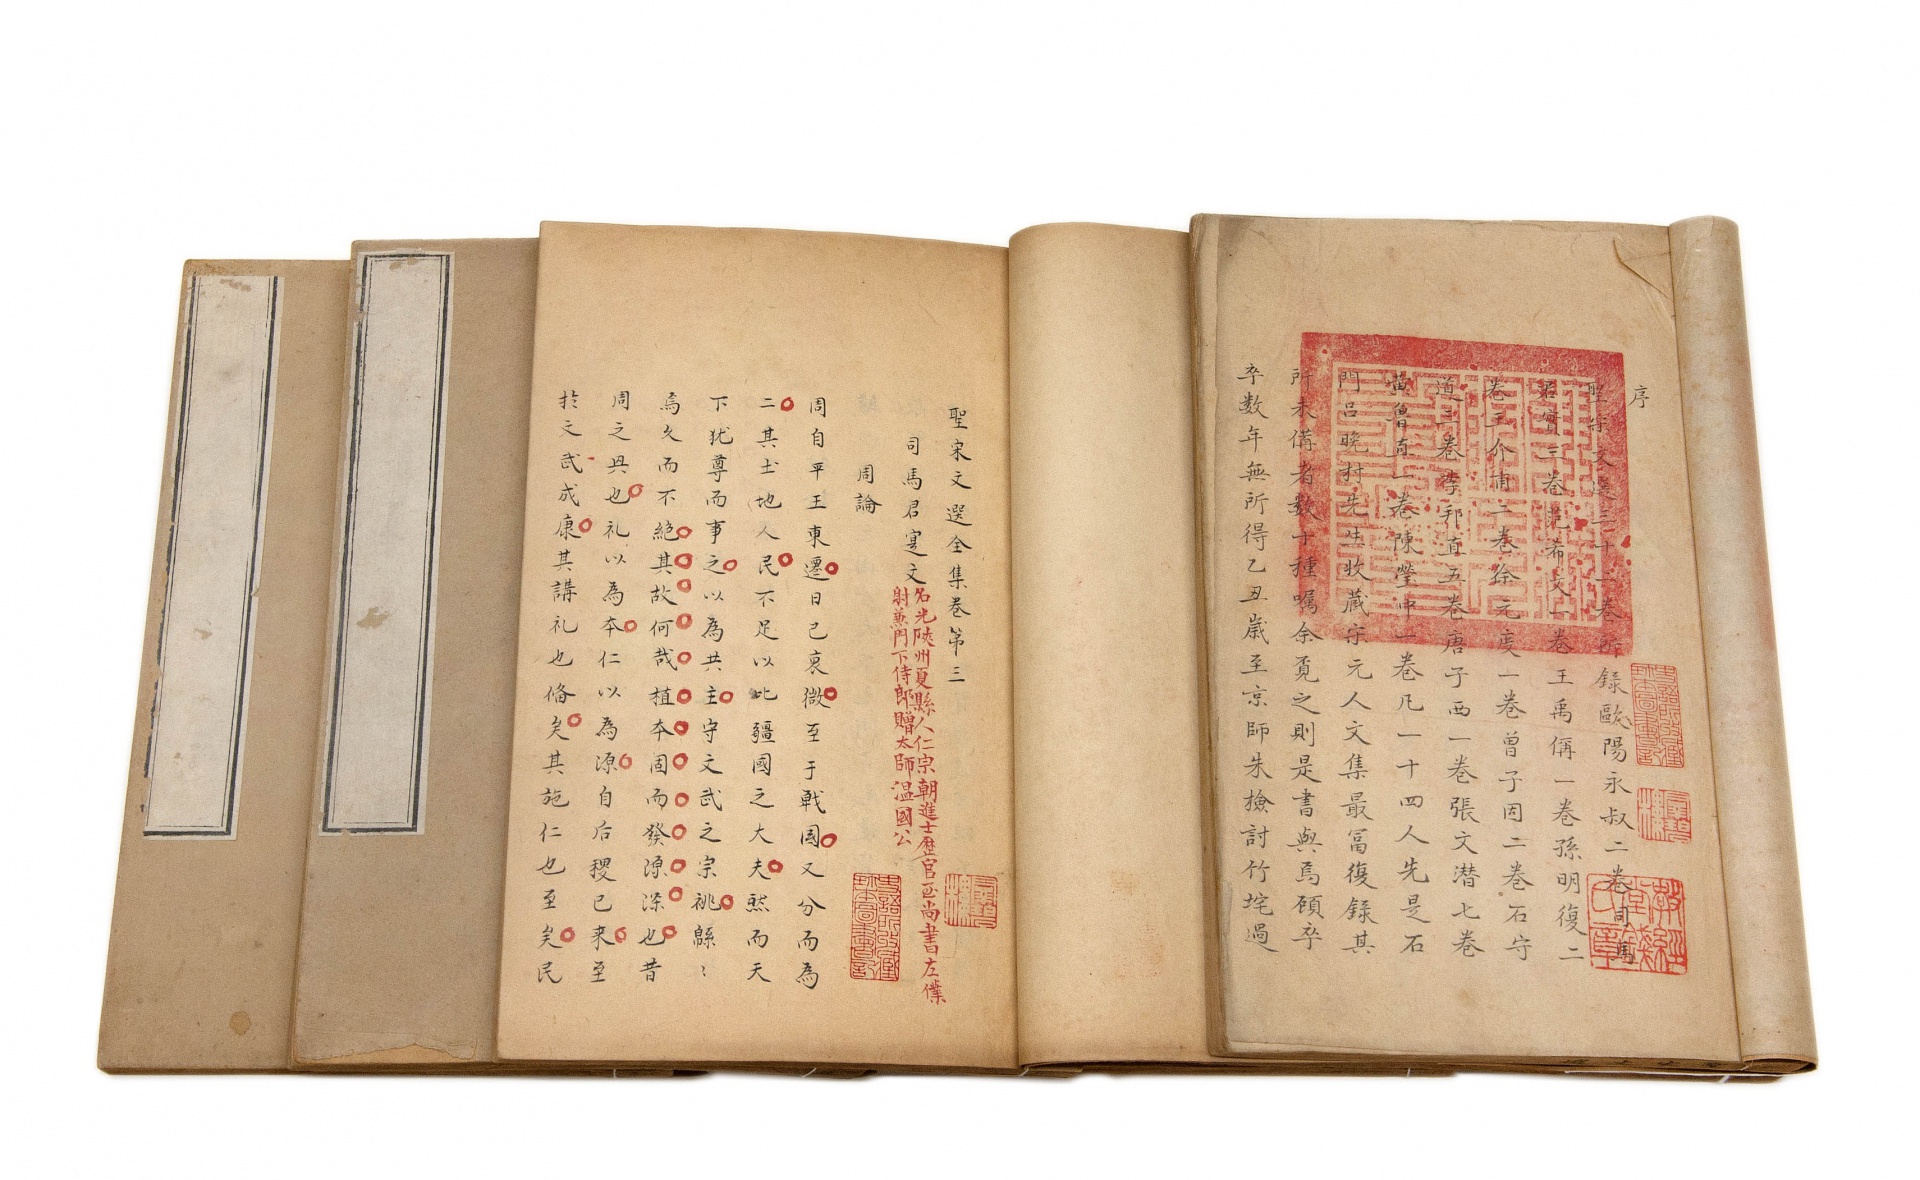 序
聖宋文選三十二卷所錄歐陽永叔二卷司馬
君實三卷范希文一卷王禹偁一卷孫明復二
卷王介甫二卷徐元度一卷曾子固二卷石守
道三卷李邦直五卷唐子西一卷張文潜七卷
黃魯直一卷陳瑩中一卷凡一十四人先是石
門呂晚村先生收藏宋元人文集最富復錄其
所未備者数十種嘱余覓之則是書與焉顾卒
卒数年無所得乙丑歲至京師朱檢討竹垞過
聖宋文選全集卷第三
司馬君寔文
名光陝州夏縣人仁宗朝進士歷官至尚書左僕
射兼門下侍郎贈太師温國公
周論
周自平王東遷日已衰微至于戰國又分而為
二其土地人民不足以比疆國之大夫然而天
下犹尊而事之以為共主守文武之宗祧緜〻
焉久而不絕其故何哉植本固而發源深也昔
周之興也礼以為本仁以為源自后稷已来至
扵文武成康其講礼也俻矣其施仁也至矣民